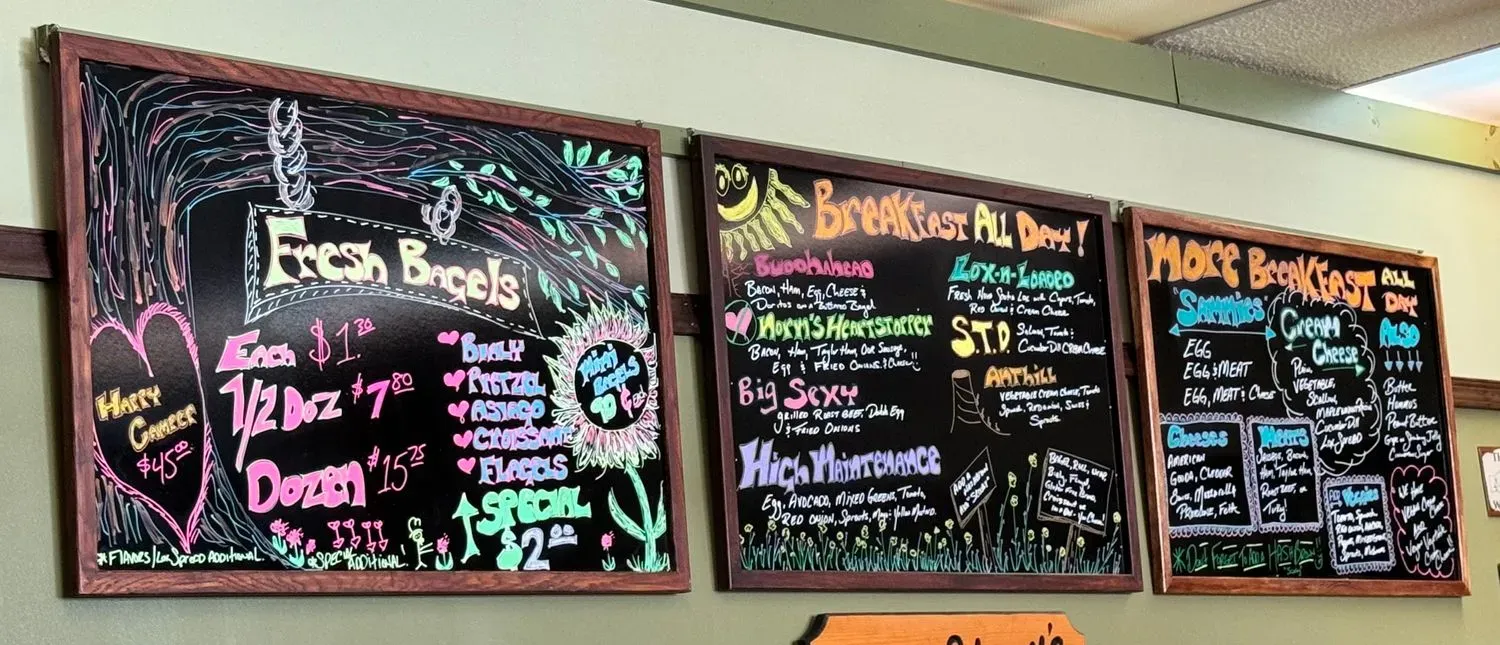 Fresh Bagels
Each $1.30
1/2 Doz $7.80
Dozen $15.25
Happy
Camper
$45.00
Bialy
Pretzel
Asiago
Croissant
Flagels
Special
$2.00
Mini
Bagels
*Flavors/Lox Spread Additional.
*Special Additional.
Breakfast All Day!
Buddhahead
Bacon, Ham, Egg, Cheese &
Doritos on a Buttered Bagel
Norm's Heartstopper
Bacon, Ham, Taylor Ham, Our Sausage,
Egg & Fried Onions & Cheese!!
Big Sexy
Grilled Roast Beef, Dbl Egg
& Fried Onions
High Maintenance
Egg, Avocado, Mixed Greens, Tomato,
Red Onion, Sprouts, Mayo
Lox-n-Loaded
Fresh Nova Scotia Lox with Capers, Tomato,
Red Onion & Cream Cheese
S.T.D.
Salmon, Tomato &
Cucumber Dill Cream Cheese
Anthill
Vegetable Cream Cheese, Tomato
Spinach, Red Onion, Swiss &
Sprouts
More Breakfast All
Day
"Sammies"
Egg
Egg & Meat
Egg, Meat & Cheese
Cream
Cheese
Plain
Vegetable,
Scallion,
Cucumber Dill
Lox Spread
Also
Butter
Hummus
Peanut Butter
Cinnamon Sugar
Cheeses
American
Gouda, Cheddar
Swiss, Mozzarella
Provolone, Feta
Meats
Sausage, Bacon,
Ham, Taylor Ham,
Roast Beef, or
Turkey
Veggies
*Don't Forget to Add Hashbrown
"We Have
Vegan Cream
Cheese